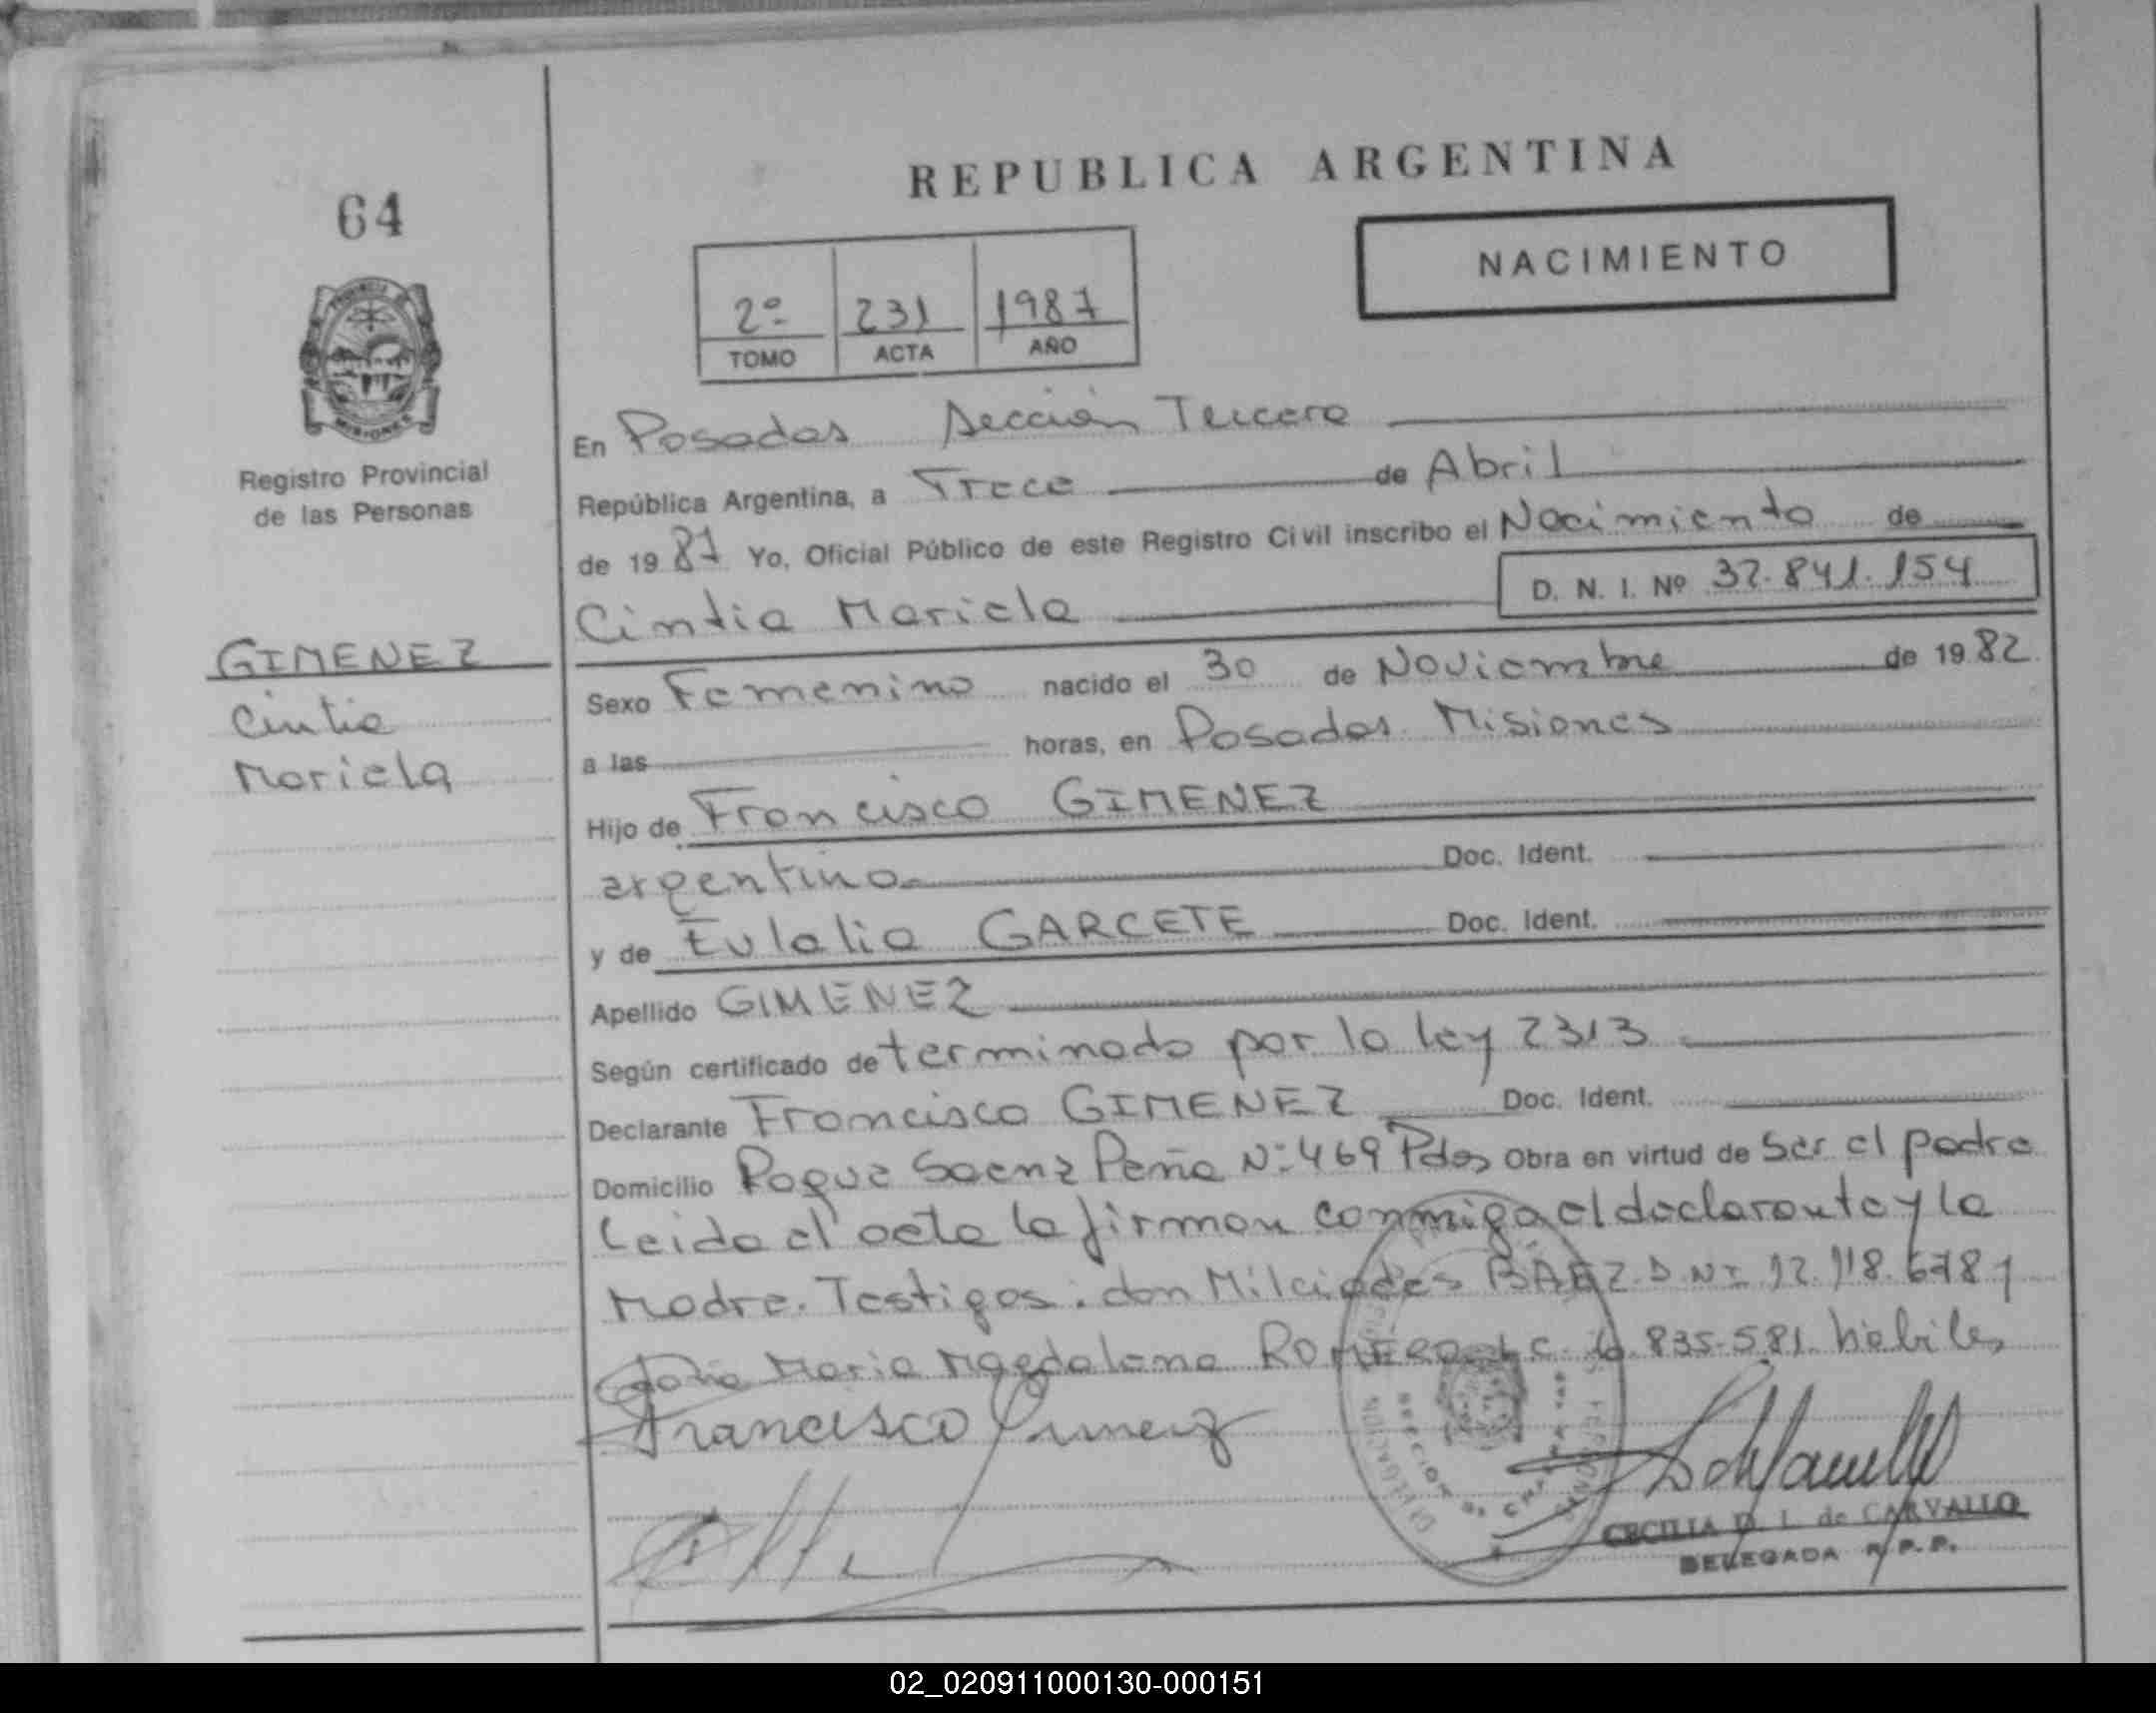 64
REPUBLICA ARGENTINA
NACIMIENTO
2º 231 1987
TOMO ACTA AÑO
Registro Provincial
de las Personas
GIMENEZ
Cintia
Mariela
En Posadas Sección Tercera
República Argentina, a Trece de Abril
de 1987 Yo, Oficial Público de este Registro Civil inscribo el Nacimiento de
D. N. I. Nº 32.841.154
Cintia Mariela
Sexo Femenino nacido el 30 de Noviembre de 1982
a las horas, en Posadas Misiones
Hijo de Francisco GIMENEZ
argentino Doc. Ident.
y de Eulalia GARCETE Doc. Ident.
Apellido GIMENEZ
Según certificado determinado por la ley 2313
Declarante Francisco GIMENEZ Doc. Ident.
Domicilio Roque Saenz Peña Nº 469 Pdas Obra en virtud de ser el padre
Leida el acta la firman conmigo el declarante y la
Madre. Testigos: don Milciades BAEZ D N I 12.118.678 y
doña Maria Magdalena ROMERO L C 6.835.581. hábiles
Francisco Gimenez
CECILIA D. L. de CARVALLO
DELEGADA R.P.P.
02_020911000130-000151